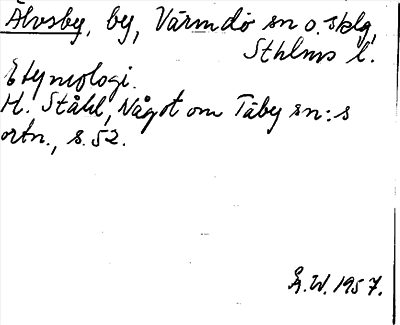 Älvsby, by, Värmdö sn o. sklg,
Sthlms l.
Etymologi.
H. Ståhl, Något om Täby sn:s
ortn., s. 52.
Å.W. 1957.